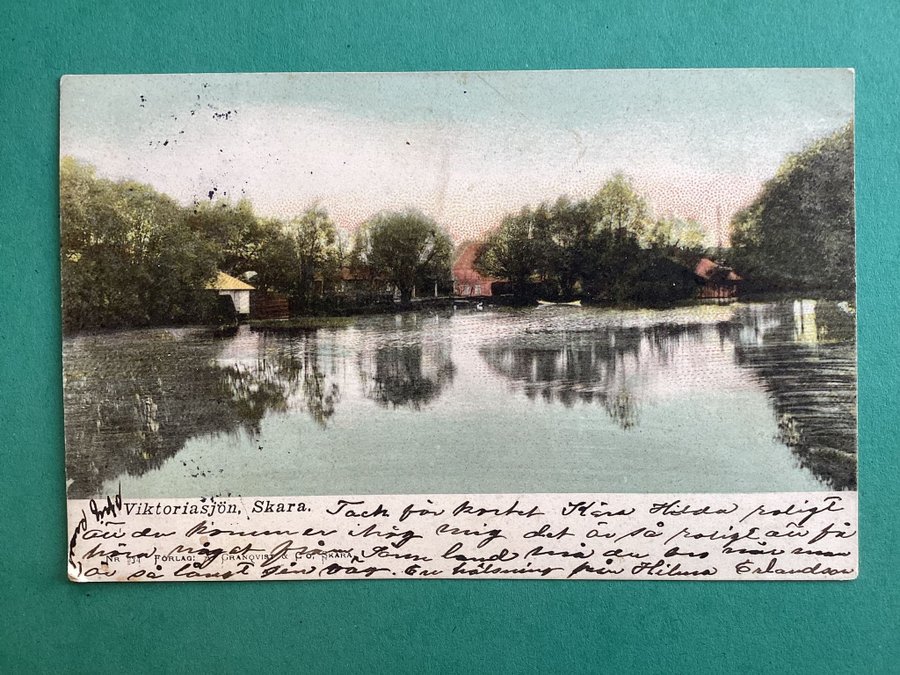 Viktoriasjön, Skara. Tack för kortet Kära Hilda roligt
att du kommer ihåg mig det är så roligt att få
höra något från land må du bra när man
NR FÖRLAG: A. GRANQVIST & CO, SKARA
är så långt sen väg. En hälsning från Hilma Erlandson